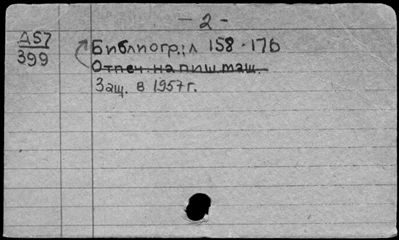 - 2 -
Д57
399
Библиогр.: л 158-176
Отпеч. на пиш. маш.
Защ. в 1957 г.